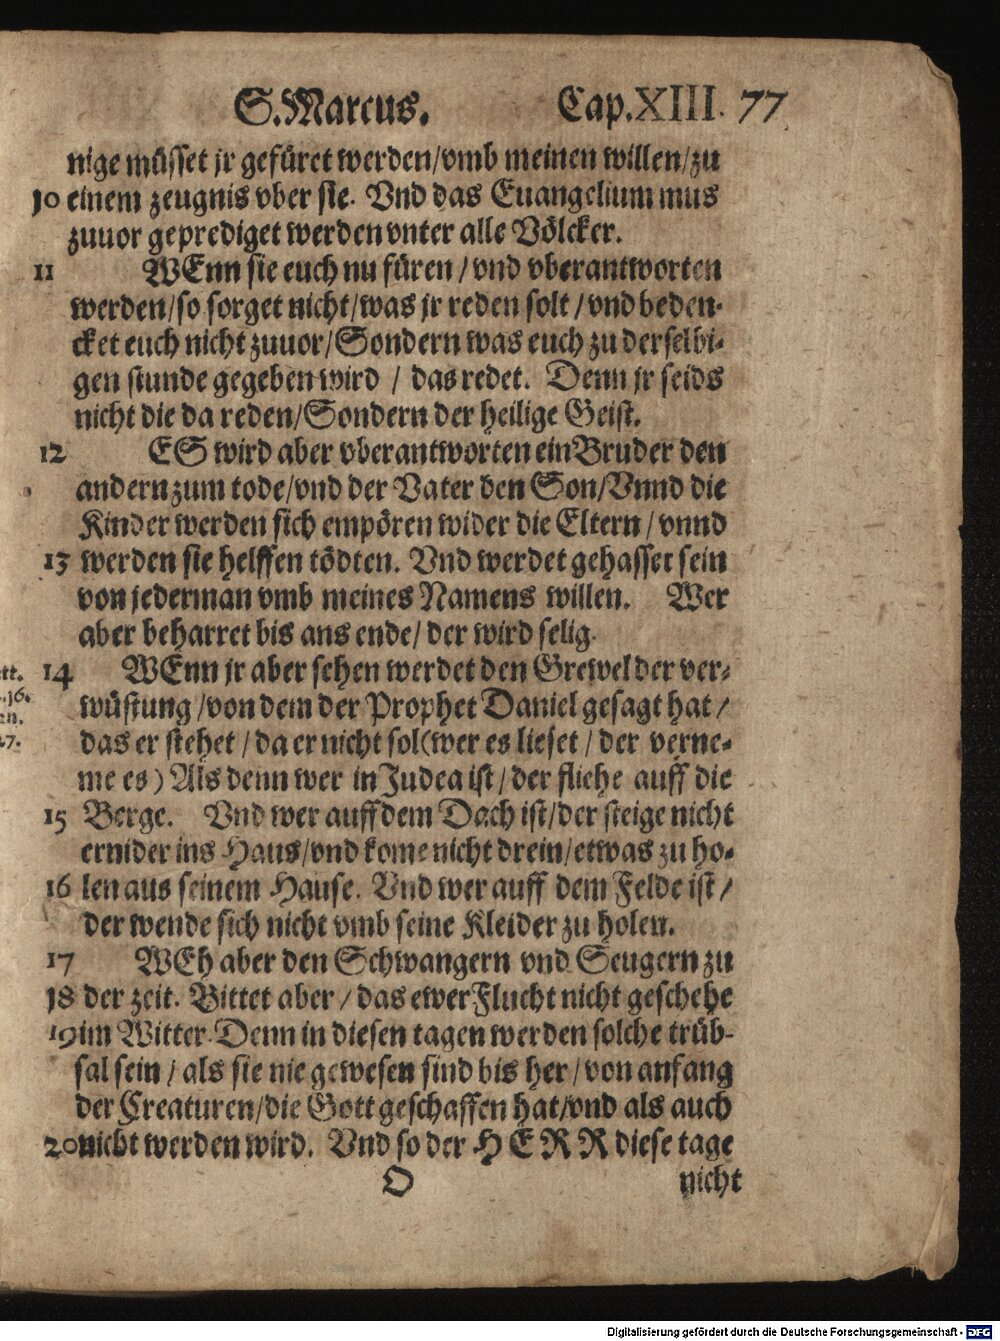 S. Marcus. Cap. XIII. 77
nige müsset jr gefüret werden/vmb meinen willen/zu
10 einem zeugnis vber sie. Vnd das Euangelium mus
zuuor geprediget werden vnter alle Völcker.
11 WEnn sie euch nu füren/vnd vberantworten
werden/so sorget nicht/was jr reden solt/vnd beden-
cket euch nicht zuuor/Sondern was euch zu derselbi-
gen stunde gegeben wird/das redet. Denn jr seids
nicht die da reden/Sondern der heilige Geist.
12 ES wird aber vberantworten ein Bruder den
andern zum tode/vnd der Vater den Son/Vnnd die
Kinder werden sich empören wider die Eltern/vnnd
13 werden sie helffen tödten. Vnd werdet gehasset sein
von jederman vmb meines Namens willen. Wer
aber beharret bis ans ende/der wird selig.
14 WEnn jr aber sehen werdet den Grewel der ver-
wüstung/von dem der Prophet Daniel gesagt hat/
das er stehet/da er nicht sol (wer es lieset/der verne-
me es) Als denn wer in Judea ist/der fliehe auff die
15 Berge. Vnd wer auff dem Dach ist/der steige nicht
ernider ins Haus/vnd kome nicht drein/etwas zu ho-
16 len aus seinem Hause. Vnd wer auff dem Felde ist/
der wende sich nicht vmb seine Kleider zu holen.
17 WEh aber den Schwangern vnd Seugern zu
18 der zeit. Bittet aber/das ewer Flucht nicht geschehe
19 im Witter. Denn in diesen tagen werden solche trüb-
sal sein/als sie nie gewesen sind bis her/von anfang
der Creaturen/die Gott geschaffen hat/vnd als auch
20 nicht werden wird. Vnd so der HERR diese tage
O nicht
tt.
.16.
en.
27.
Digitalisierung gefördert durch die Deutsche Forschungsgemeinschaft - DFG